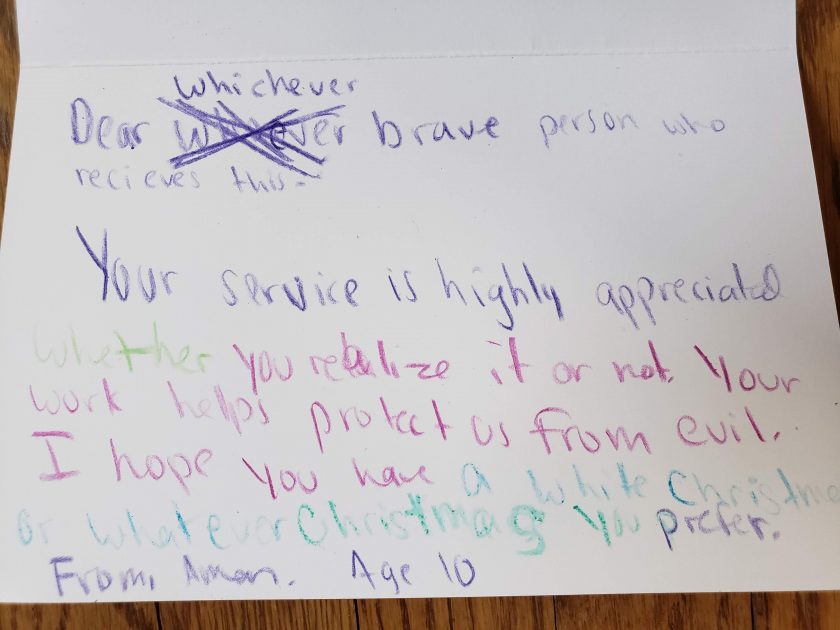 Whichever
Dear brave person who
recieves this-
Your service is highly appreciated
whether you realize it or not. Your
work helps protect us from evil.
I hope you have a white Christma
or whatever Christmas you prefer.
From, Aman. Age 10